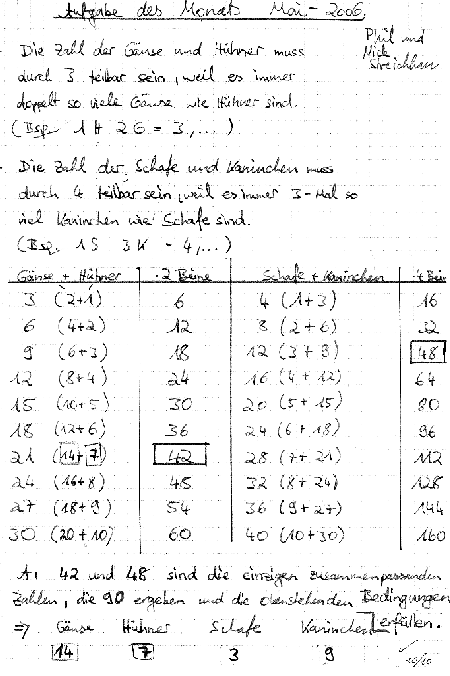 Aufgabe des Monats Mai - 2006
Phil und
Nick
Streichhan
- Die Zahl der Gänse und Hühner muss
durch 3 teilbar sein, weil es immer
doppelt so viele Gänse wie Hühner sind.
(Bsp. 1H 2G = 3,...)
- Die Zahl der Schafe und Kaninchen muss
durch 4 teilbar sein, weil es immer 3-Mal so
viel Kaninchen wie Schafe sind.
(Bsp. 1S 3K - 4,...)
Gänse + Hühner · 2 Beine Schafe + Kaninchen · 4 Bein
3 (2+1) 6 4 (1+3) 16
6 (4+2) 12 8 (2+6) 32
9 (6+3) 18 12 (3+9) 48
12 (8+4) 24 16 (4+12) 64
15 (10+5) 30 20 (5+15) 80
18 (12+6) 36 24 (6+18) 96
21 (14+7) 42 28 (7+21) 112
24 (16+8) 48 32 (8+24) 128
27 (18+9) 54 36 (9+27) 144
30 (20+10) 60 40 (10+30) 160
A: 42 und 48 sind die einzigen zusammenpassenden
Zahlen, die 90 ergeben und die obenstehenden Bedingungen
erfüllen.
=> Gänse Hühner Schafe Kaninchen
14 7 3 9